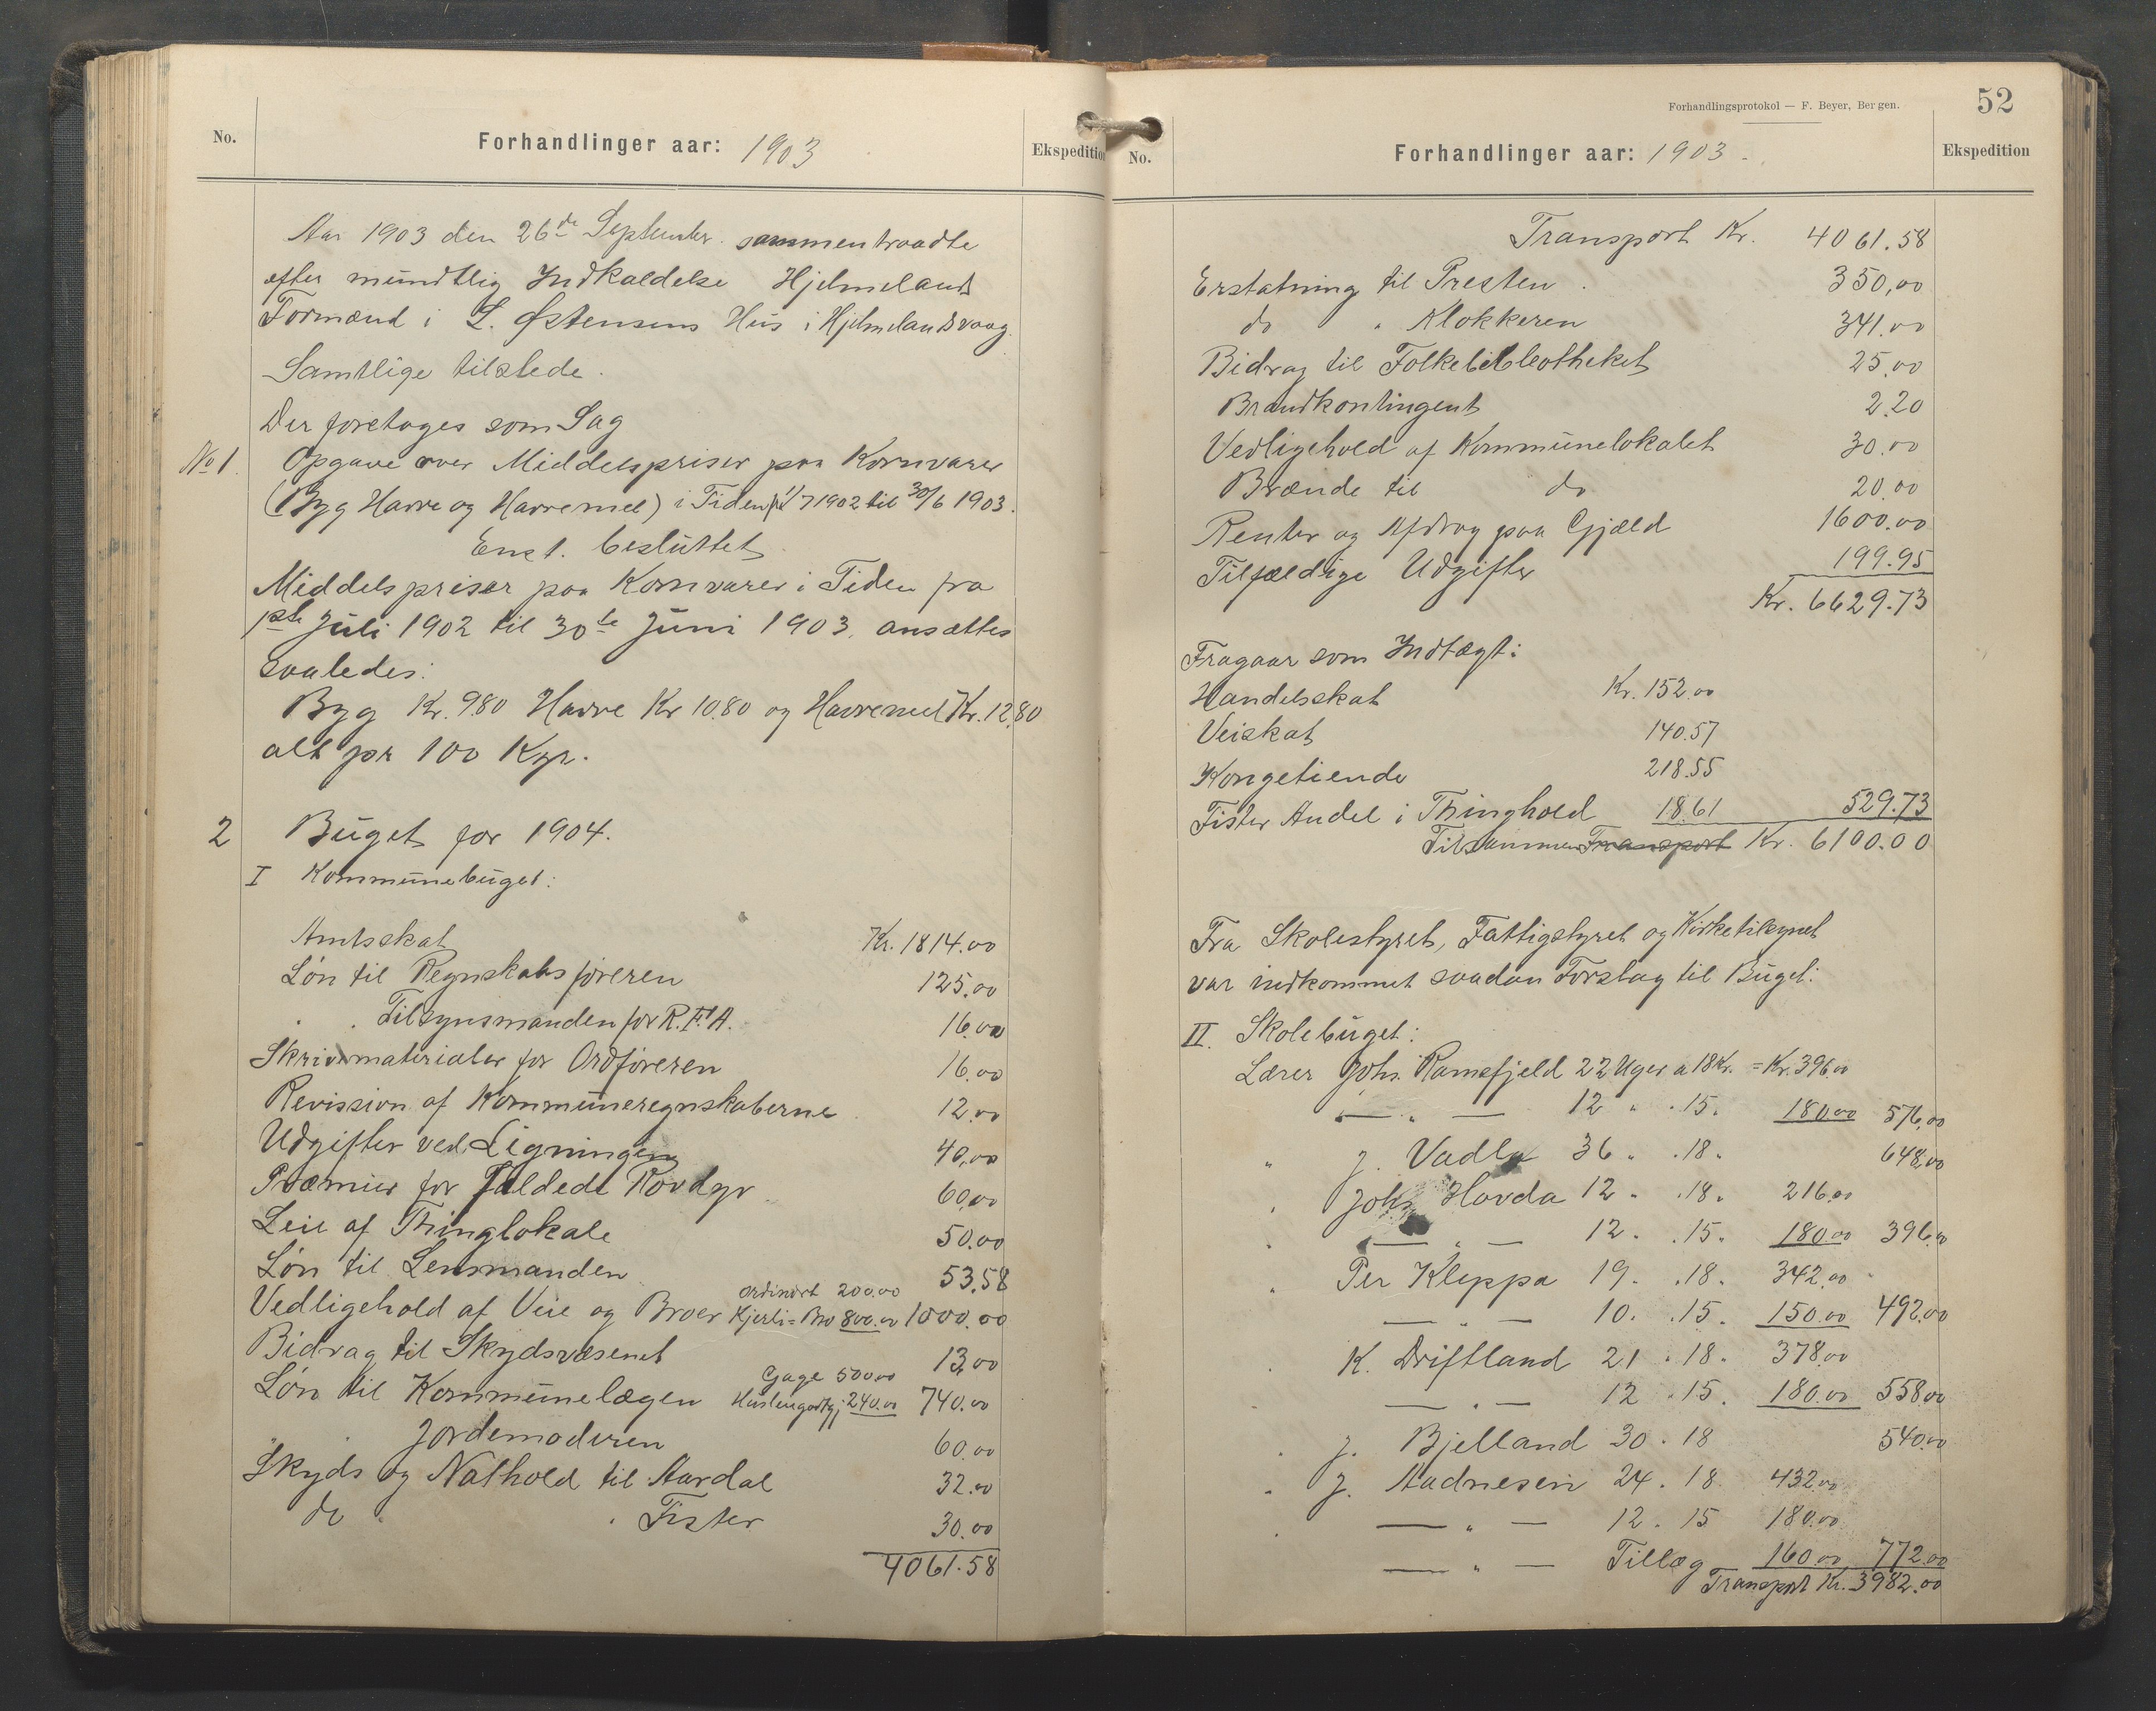 No.
Forhandlinger aar: 1903
Ekspedition
Aar 1903 den 26de September sammentraadte
efter mundtlig Indkaldelse Hjelmelands
Formænd i L. Østensens Hus i Hjelmelandsvaag.
Samtlige tilstede.
Der foretages som Sag
No 1. Opgave over Middelspriser paa Kornvarer
(Byg Havre og Havremel) i Tiden fra 1/7 1902 til 30/6 1903.
Enst. besluttet
Middelspriser paa Kornvarer i Tiden fra
1ste Juli 1902 til 30te Juni 1903. ansættes
saaledes:
Byg Kr. 9.80 Havre Kr 10.80 og Havremel Kr. 12.80
alt pr 100 Kgr.
2 Buget for 1904.
I Kommunebuget:
Amtsskat Kr. 1814.00
Løn til Regnskabsføreren 125.00
" " Tilsynsmanden for R.F.A. 16.00
Skrivematerialer for Ordføreren 16.00
Revission af Kommuneregnskaberne 12.00
Udgifter ved Ligningen 40.00
Præmier for fældede Rovdyr 60.00
Leie af Thinglokale 50.00
Løn til Lensmanden 53.58
ordinært 200.00
Vedligehold af Veie og Broer Hjerli=Bro 800.00 1000.00
Bidrag til Skydsvæsenet 13.00
Gage 500.00
Løn til Kommunelægen Huslengodtgj 240.00 740.00
" " Jordemoderen 60.00
Skyds og Nathold til Aardal 32.00
do " " Fister 30.00
4061.58
Forhandlingsprotokol — F. Beyer, Bergen.
52
No.
Forhandlinger aar: 1903.
Ekspedition
Transport Kr. 4061.58
Erstatning til Presten. 350,00
do " Klokkeren 341.00
Bidrag til Folkebibleotheket 25.00
Brandkontingent 2.20
Vedligehold af Kommunelokalet 30.00
Brænde til do 20.00
Renter og Afdrag paa Gjæld 1600.00
Tilfældige Udgifter 199.95
Kr. 6629.73
Fragaar som Indtægt:
Handelsskat Kr. 152.00
Veiskat 140.57
Kongetiende 218.55
Fister Andel i Thinghold 18.61 529.73
Tilsammen Transport Kr. 6100.00
Fra Skolestyret, Fattigstyret og Kirketilsynet
var indkommet saadan Forslag til Buget:
II. Skolebuget:
Lærer Johs. Ramsfjeld 22 Uger a 18 Kr. = Kr. 396.00
— " — 12 " " 15 " 180.00 576,00
" J. Vadla 36 " " 18 " 648,00
" Johs Hovda 12 " " 18 " 216.00
" — " — 12 " " 15 " 180.00 396.00
" Per Kleppa 19 " " 18 " 342.00
— " — 10 " " 15 " 150.00 492.00
" K. Driftland 21 " 18 " 378.00
— " — 12 " 15 " 180.00 558.00
" J. Bjelland 30 " 18 540.00
" J. Aadnesen 24 " 18 432.00
" — " — 12 " 15 180.00
— " — Tillæg 160.00 772.00
Transport Kr. 3982.00